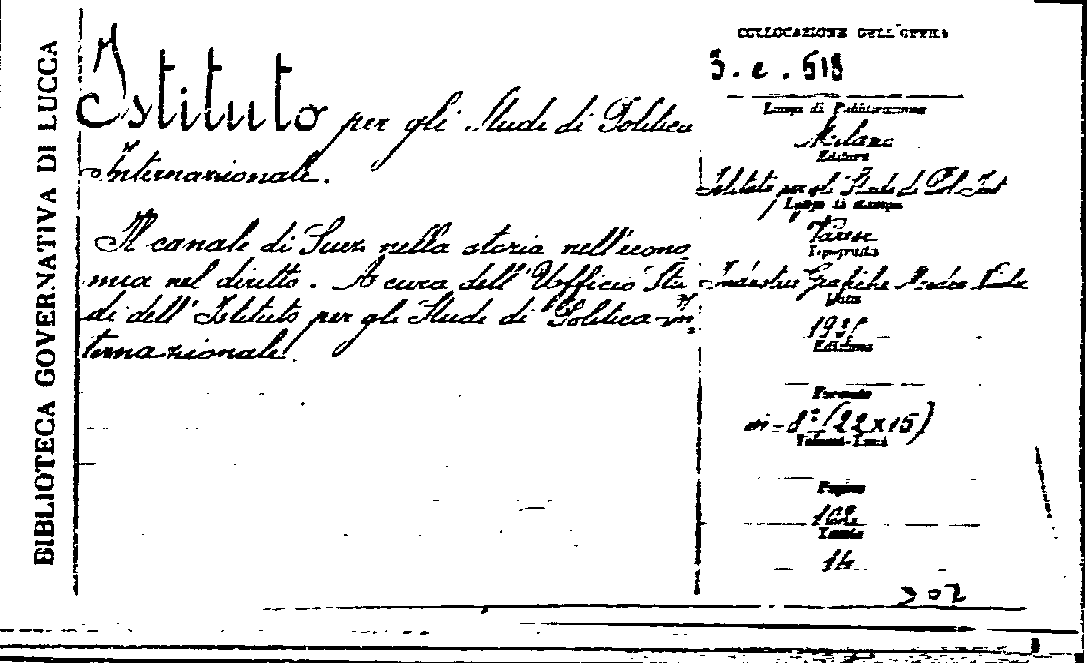 BIBLIOTECA GOVERNATIVA DI LUCCA
Istituto per gli Studi di Politica
Internazionale.
Il canale di Suez nella storia nell'econo
mia nel diritto. A cura dell'Ufficio Stu
di dell'Istituto per gli Studi di Politica in
ternazionale.
COLLOCAZIONE DELL'OPERA
3. e. 518
Luogo di Pubblicazione
Milano
Editore
Istituto per gli Studi di Pol. Int
Luogo di stampa
Varese
Tipografia
Industrie Grafiche
Data
Edizione
Formato
in-8° (22x15)
Pagine
Tavole
14
302